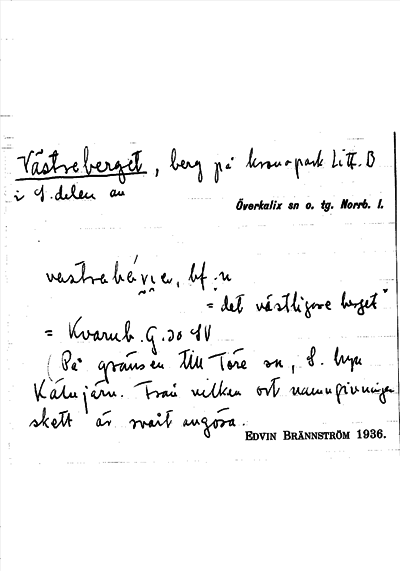 Västreberget, berg på kronopark Litt. B
i S. delen av
Överkalix sn o. tg. Norrb. l.
bf. :n
= "det västligare berget"
= Kvarnb. G. 30 SV
(På gränsen till Töre sn, S. byn
Kälvjärv. Från vilken ort namngivningen
skett är svårt avgöra.
EDVIN BRÄNNSTRÖM 1936.